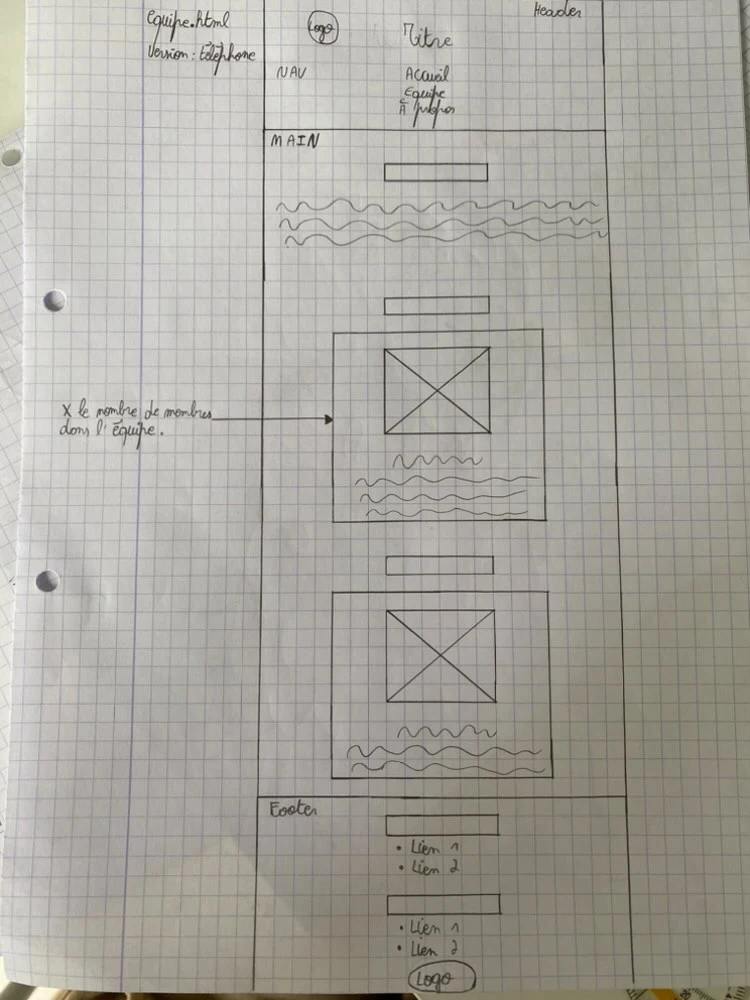 Equipe.html
Version: téléphone
Header
Logo
Titre
NAV
Accueil
Equipe
À propos
MAIN
X le nombre de membres
dans l'équipe.
Footer
• Lien 1
• Lien 2
• Lien 1
• Lien 2
Logo